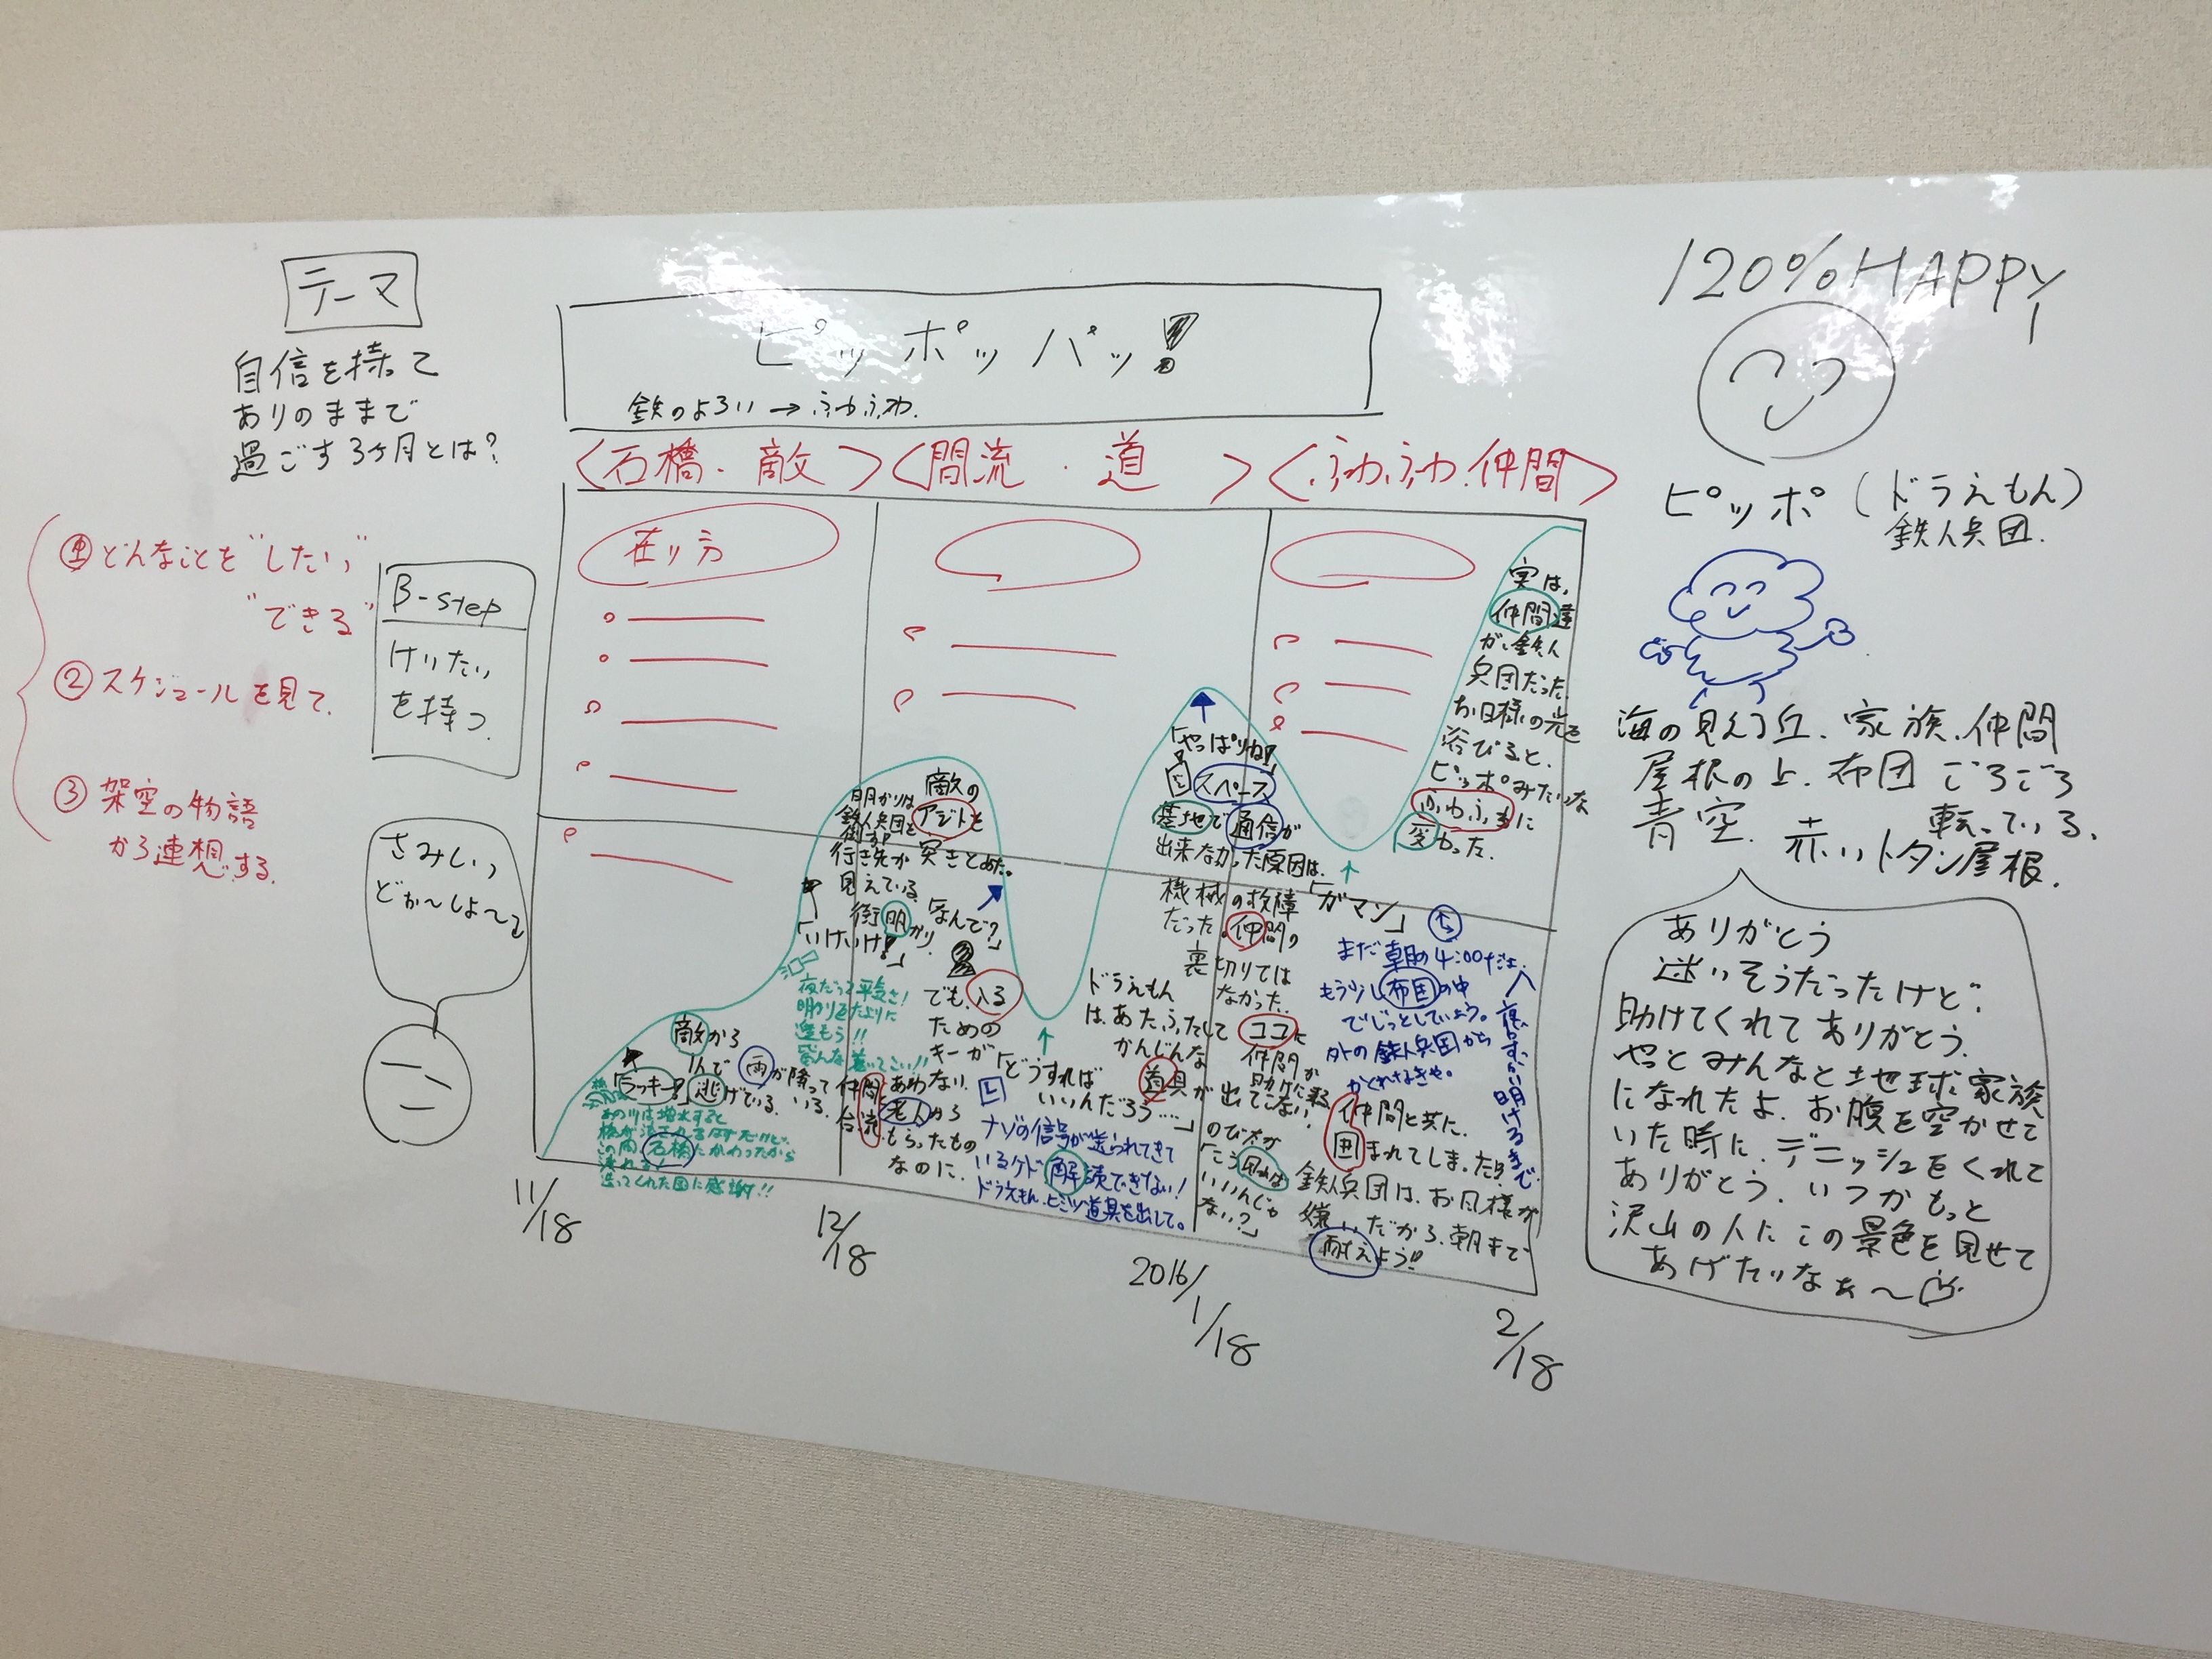 テーマ
自信を持って
ありのままで
過ごす3ケ月とは?
①どんなことを"したい"
"できる"
②スケジュールを見て、
③架空の物語
から連想する。
β-step
けいたい
を持つ
さみしいっ
どぉ〜しよ〜
ピッポッパッ!
鉄のよろい→ふわふわ
<石橋・敵><間流・道><ふわふわ・仲間>
在り方
敵から
「ラッキー!」逃げている。
んで雨が降って
いる。
あの川は増水すると
夜だって平気さ!
明かりをたよりに
進もう!!
明かりは
鉄人兵団を
行き先が
見えている。
街明かり。
「いけいけ!」
敵の
アジトを
突きとめた。
「なんで?」
でも、入る
ための
キーが
あわない。
老人から
もらったもの
なのに。
仲間と
合流。
「どうすれば
いいんだろう……」
ナゾの信号が送られてきて
いるケド解読できない!
ドラえもん、ヒミツ道具を出して。
ドラえもん
は、あたふたして
かんじんな
道具が出てこない!
のび太が
「こう
いいんじゃ
ない?」
「やっぱりね!」
スペース
基地で通信が
出来なかった原因は、
機械の故障
だった。仲間の
裏切りでは
なかった。
ココに
仲間が
助けに来る
「ガマン」
まだ朝の4:00だよ。
もう少し布団の中
でじっとしていよう。
外の鉄人兵団から
かくれなきゃ。
夜明けるまで
仲間と共に、
囲まれてしまった!
鉄人兵団は、お日様が
嫌いだから、朝まで
耐えよう!!
実は、
仲間達
が、鉄人
兵団だった。
お日様の光を
浴びると、
ピッポみたいな
ふわふわに
変わった。
11/18
12/18
2016/1/18
2/18
120%HAPPY
ピッポ(ドラえもん)
鉄人兵団.
海の見える丘、家族、仲間
屋根の上、布団ごろごろ
転っている。
青空、赤いトタン屋根.
ありがとう
迷いそうだったけど?
助けてくれてありがとう。
やっとみんなと地球家族
になれたよ。お腹を空かせて
いた時に、デニッシュをくれて
ありがとう。いつかもっと
沢山の人にこの景色を見せて
あげたいなぁ〜